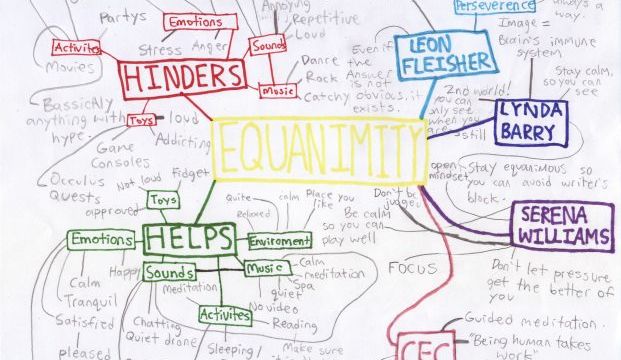 Partys
Activites
Movies
Emotions
Stress
Anger
Annoying
Repetitive
Loud
Sounds
Music
Dance
Rock
Catchy
HINDERS
Bassically
anything with
hype.
Toys
loud
Addicting
Game
Consoles
Occulus
Quests
Perseverence
always a
way.
LEON
FLEISHER
Even if
the
Answer
is not
obvious, it
exists.
Image =
Brain's immune
system
Stay calm,
so you can
see
LYNDA
BARRY
2nd world!
you can
only see
when you
are still
EQUANIMITY
open
mindset
Stay equanimous so
you can avoid writer's
block.
SERENA
WILLIAMS
Don't be
judged
Be calm
so you can
play well
FOCUS
Don't let pressure
get the better of
you
Not loud
fidget
Toys
approved
HELPS
Emotions
Happy
Calm
Tranquil
Satisfred
pleased
Sounds
meditation
Chatting
Quiet drone
Quite
relaxed
calm
Place you
like
Enviroment
Music
Calm
meditation
Spa
quiet
No video
Activites
Reading
Sleeping/
Make sure
CEC
Guided meditation.
"Being human takes
work"